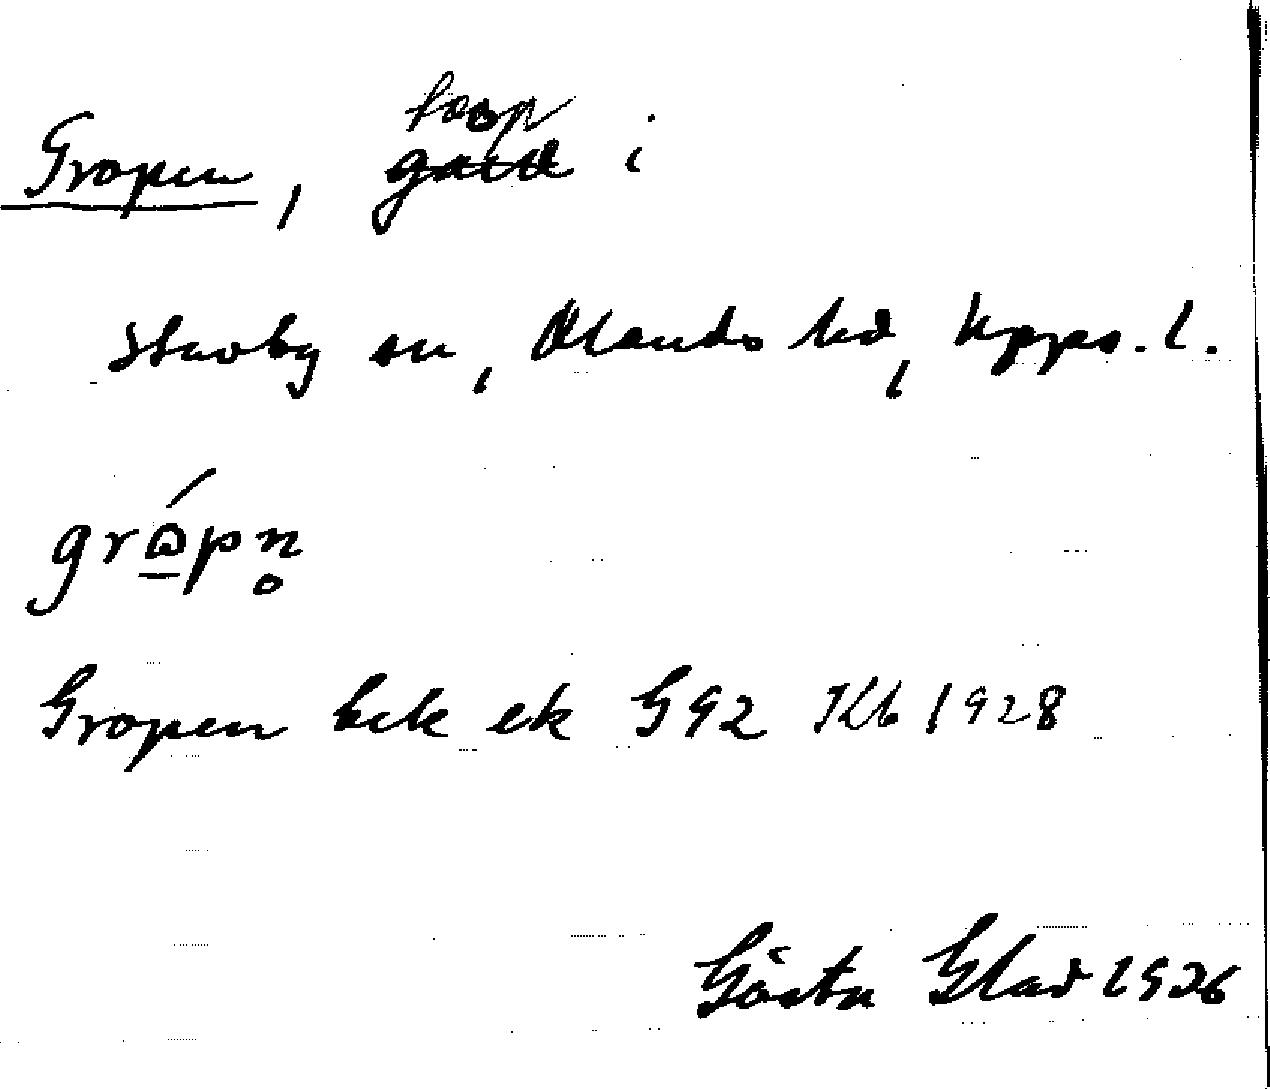 Gropen, torp i
Skuvby sn, Olands hd, Upps. l.
gró̱pn̥
Gropen bek ek G92 JKb 1928
Gösta Glad 1936